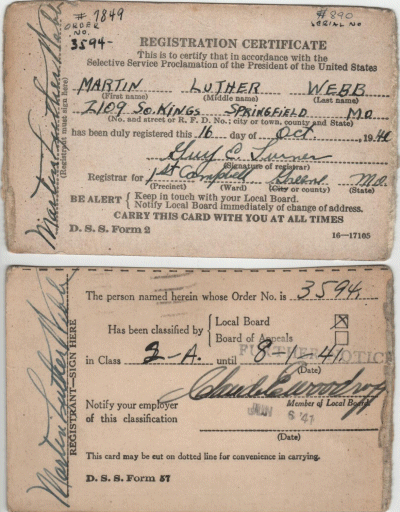 # 7849
ORDER NO.
3594-
# 890
SERIAL NO
REGISTRATION CERTIFICATE
This is to certify that in accordance with the
Selective Service Proclamation of the President of the United States
MARTIN LUTHER WEBB
(First name) (Middle name) (Last name)
2109 So. KINGS SPRINGFIELD MO
(No. and street or R. F. D. No.; city or town, county and State)
has been duly registered this 16 day of Oct. , 1940
Guy E. Turner
(Signature of registrar)
Registrar for 1st Campbell Greene Mo.
(Precinct) (Ward) (City or county) (State)
BE ALERT { Keep in touch with your Local Board.
Notify Local Board immediately of change of address.
CARRY THIS CARD WITH YOU AT ALL TIMES
D. S. S. Form 2 16—17105
Martin Luther Webb
(Registrant must sign here)
The person named herein whose Order No. is 3594,
Has been classified by { Local Board ☒
Board of Appeals ☐
FURTHER NOTICE
in Class 2-A. until 8-1-41
(Date)
Member of Local Board
Notify your employer
of this classification
JUN 6 '41
(Date)
This card may be cut on dotted line for convenience in carrying.
D. S. S. Form 57
Martin Luther Webb
REGISTRANT—SIGN HERE